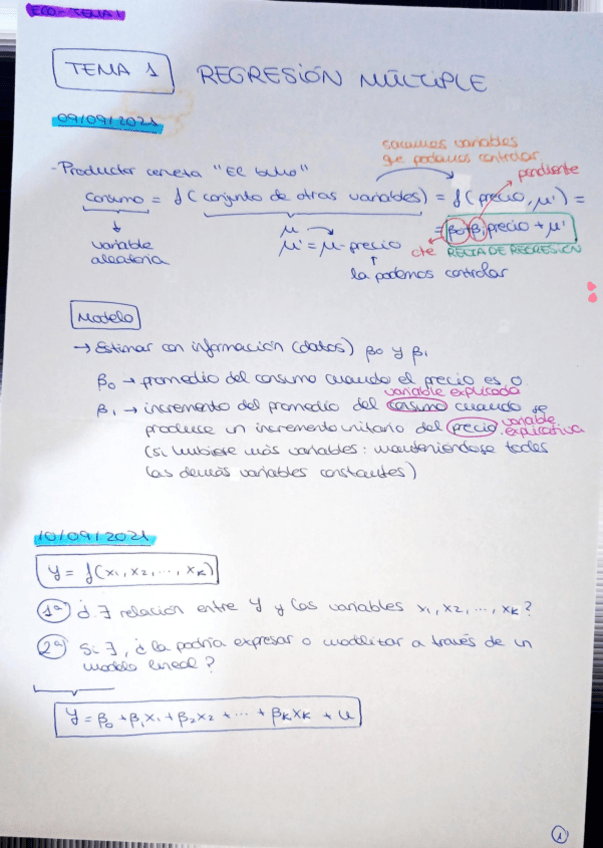 ECO - TEMA 1
TEMA 1 REGRESIÓN MÚLTIPLE
09/09/2021
sacamos variables
que podamos controlar
pendiente
- Productor cerveza "El
Consumo = f (conjunto de otras variables) = f (precio, μ') =
= β0 + β1 precio + μ'
variable
aleatoria
μ
μ' = μ - precio
cte RECTA DE REGRESIÓN
la podemos controlar
Modelo
→ Estimar con información (datos) β0 y β1
β0 → promedio del consumo cuando el precio es 0
variable explicada
β1 → incremento del promedio del consumo cuando se
produce un incremento unitario del precio variable explicativa
(si hubiese más variables: manteniéndose todas
las demás variables constantes)
10/09/2021
y = f(x1, x2, ..., xK)
1ª) ¿∃ relación entre y y las variables x1, x2, ..., xK?
2ª) Si ∃, ¿la podría expresar o modelizar a través de un
modelo lineal?
y = β0 + β1x1 + β2x2 + ... + βKxK + u
1